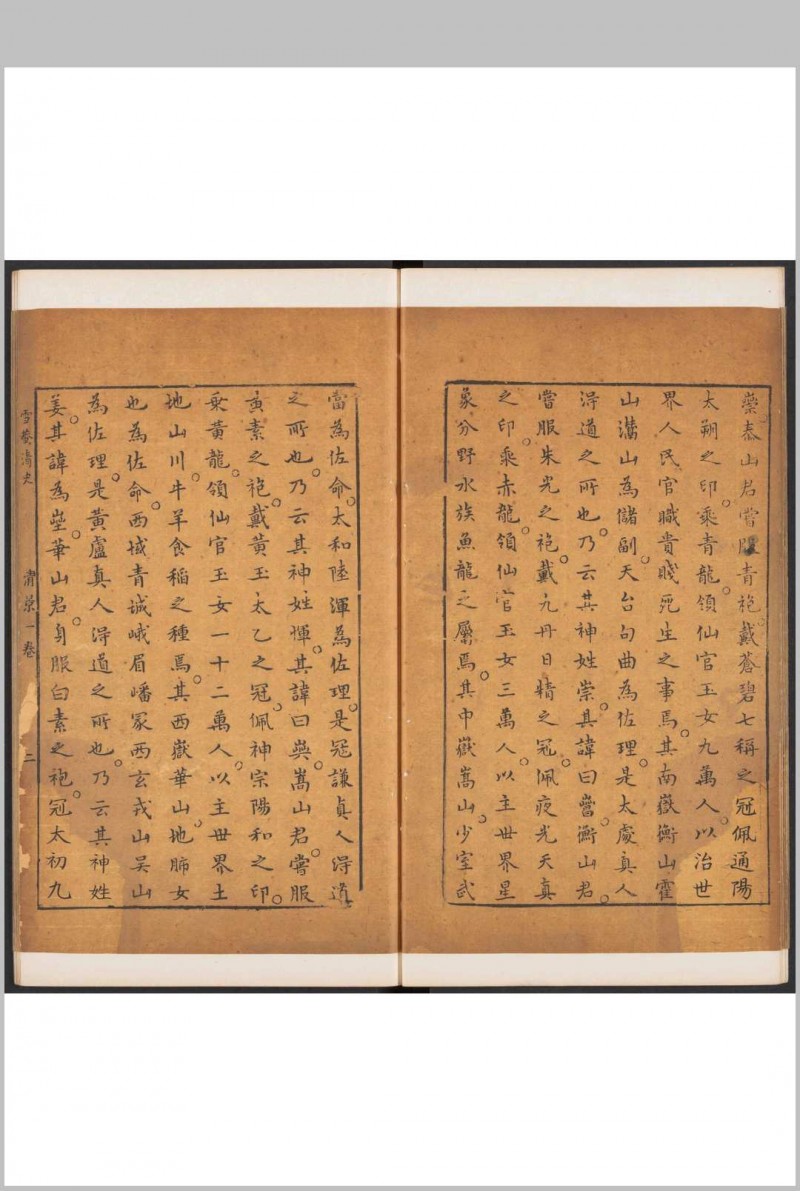 崇泰山君嘗服青袍。戴蒼碧七稱之冠佩通陽
太朔之印。乘青龍。領仙官玉女九萬人。以治世
界人民官職貴賤死生之事焉。其南嶽衡山霍
山灊山為儲副。天台句曲為佐理。是太處真人
淂道之所也。乃云其神姓崇。其諱曰𡾔。衡山君。
嘗服朱光之袍。戴九丹日精之冠。佩夜光天真
之印。乘赤龍。領仙官玉女三萬人。以主世界星
象分野水族魚龍之屬焉。其中嶽嵩山。少室武
當為佐命。太和陸渾為佐理。是冦謙真人淂道
之所也。乃云其神姓惲。其諱曰。嵩山君。嘗服
黃素之袍。戴黃玉太乙之冠。佩神宗陽和之印。
乘黃龍。領仙官玉女一十二萬人。以主世界土
地山川牛羊食稻之種焉。其西嶽華山。地肺女
也為佐命。西域青城峨眉嶓冢西玄戎山吳山
為佐理。是黃盧真人淂道之所也。乃云其神姓
姜。其諱為壘。華山君。身服白素之袍。冠太初九
雪菴清史 清景一卷 二